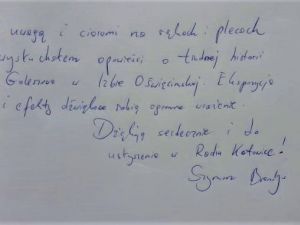 uwagą i ciarami na rękach i plecach
wysłuchałem opowieści o trudnej historii
w Izbie Oświęcimskiej. Ekspozycja
i efekty dźwiękowe robią ogromne wrażenie.
Dziękuję serdecznie i do
usłyszenia w Radiu Katowice!
Szymon